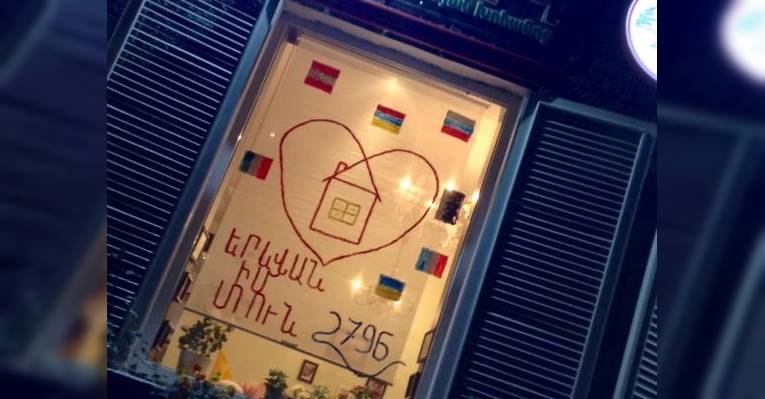 ԵՐԵՎԱՆ
ԻՄ
ՏՈՒՆ
2796